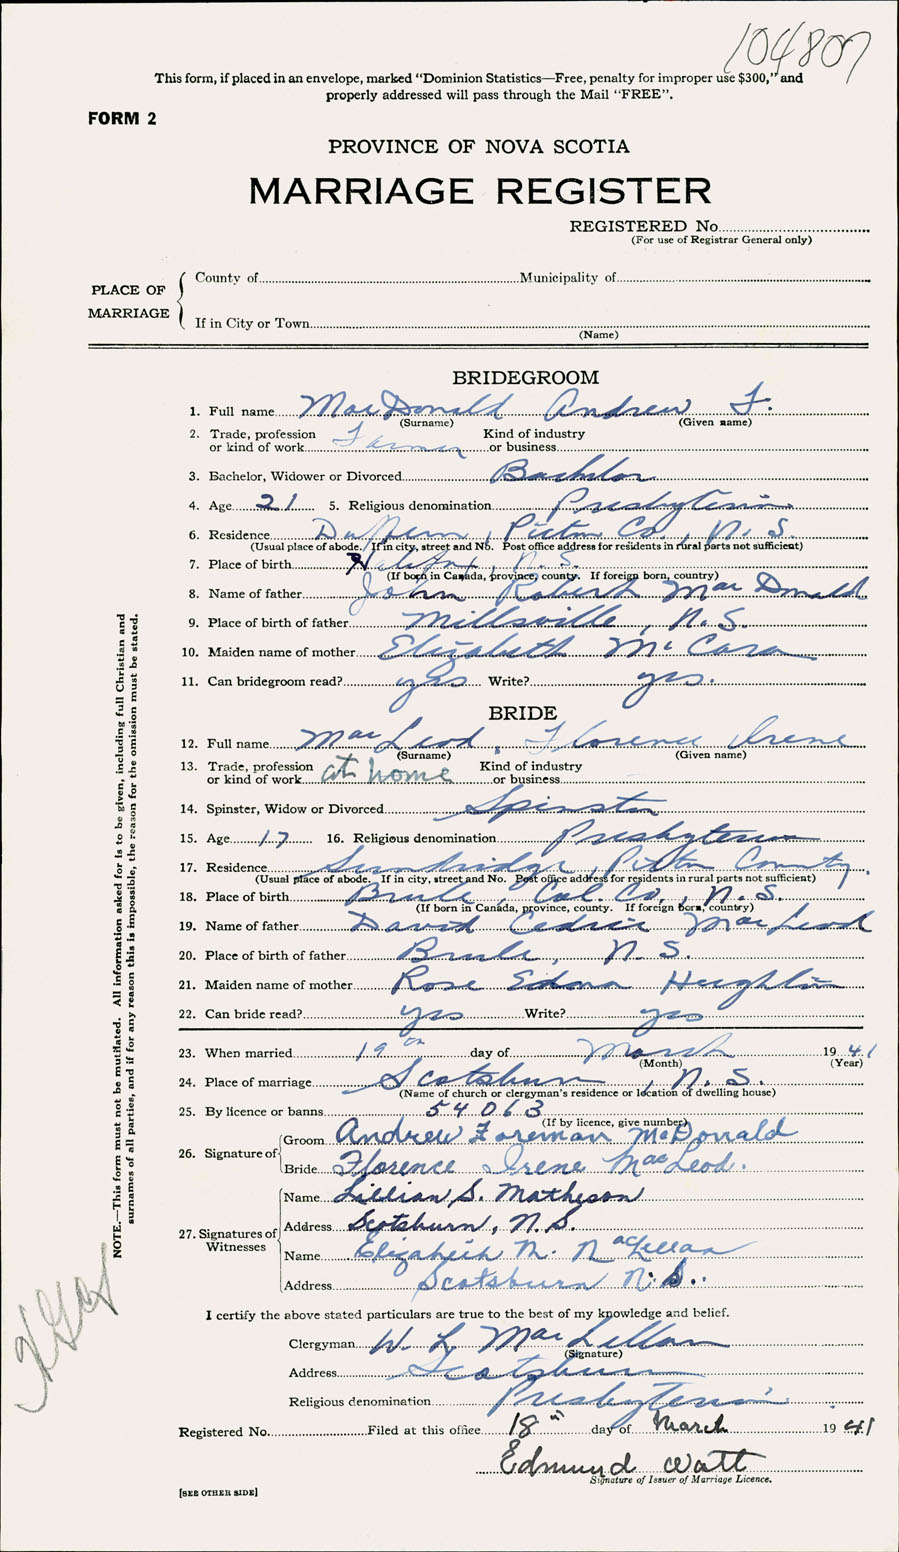 104807
This form, if placed in an envelope, marked "Dominion Statistics—Free, penalty for improper use $300," and
properly addressed will pass through the Mail "FREE".
FORM 2
PROVINCE OF NOVA SCOTIA
MARRIAGE REGISTER
REGISTERED No.
(For use of Registrar General only)
PLACE OF MARRIAGE
County of Municipality of
If in City or Town
(Name)
BRIDEGROOM
1. Full name MacDonald Andrew F.
(Surname) (Given name)
2. Trade, profession or kind of work Farmer Kind of industry or business
3. Bachelor, Widower or Divorced Bachelor
4. Age 21 5. Religious denomination Presbyterian
6. Residence Pictou Co., N. S.
(Usual place of abode. If in city, street and No. Post office address for residents in rural parts not sufficient)
7. Place of birth Halifax, N. S.
(If born in Canada, province, county. If foreign born, country)
8. Name of father John Robert MacDonald
9. Place of birth of father Millsville, N. S.
10. Maiden name of mother Elizabeth McCara
11. Can bridegroom read? yes Write? yes.
BRIDE
12. Full name MacLeod, Florence Irene
(Surname) (Given name)
13. Trade, profession or kind of work at home Kind of industry or business
14. Spinster, Widow or Divorced Spinster
15. Age 17 16. Religious denomination Presbyterian
17. Residence Pictou County.
(Usual place of abode. If in city, street and No. Post office address for residents in rural parts not sufficient)
18. Place of birth Brule, Col. Co., N. S.
(If born in Canada, province, county. If foreign born, country)
19. Name of father David Cedric MacLeod
20. Place of birth of father Brule, N. S.
21. Maiden name of mother Rose Edna
22. Can bride read? yes Write? yes
23. When married 19th day of March 1941
(Month) (Year)
24. Place of marriage Scotsburn, N. S.
(Name of church or clergyman's residence or location of dwelling house)
25. By licence or banns 54063
(If by licence, give number)
26. Signature of Groom Andrew Foreman McDonald
Bride Florence Irene MacLeod.
27. Signatures of Witnesses Name Lillian S. Matheson
Address Scotsburn, N. S.
Name Elizabeth M. MacLellan
Address Scotsburn N. S.
I certify the above stated particulars are true to the best of my knowledge and belief.
Clergyman W. L. MacLellan
(Signature)
Address Scotsburn
Religious denomination Presbyterian
Registered No. Filed at this office 18th day of March 1941
Edmund Watt
Signature of Issuer of Marriage Licence.
[SEE OTHER SIDE]
NOTE.—This form must not be mutilated. All information asked for is to be given, including full Christian and
surnames of all parties, and if for any reason this is impossible, the reason for the omission must be stated.